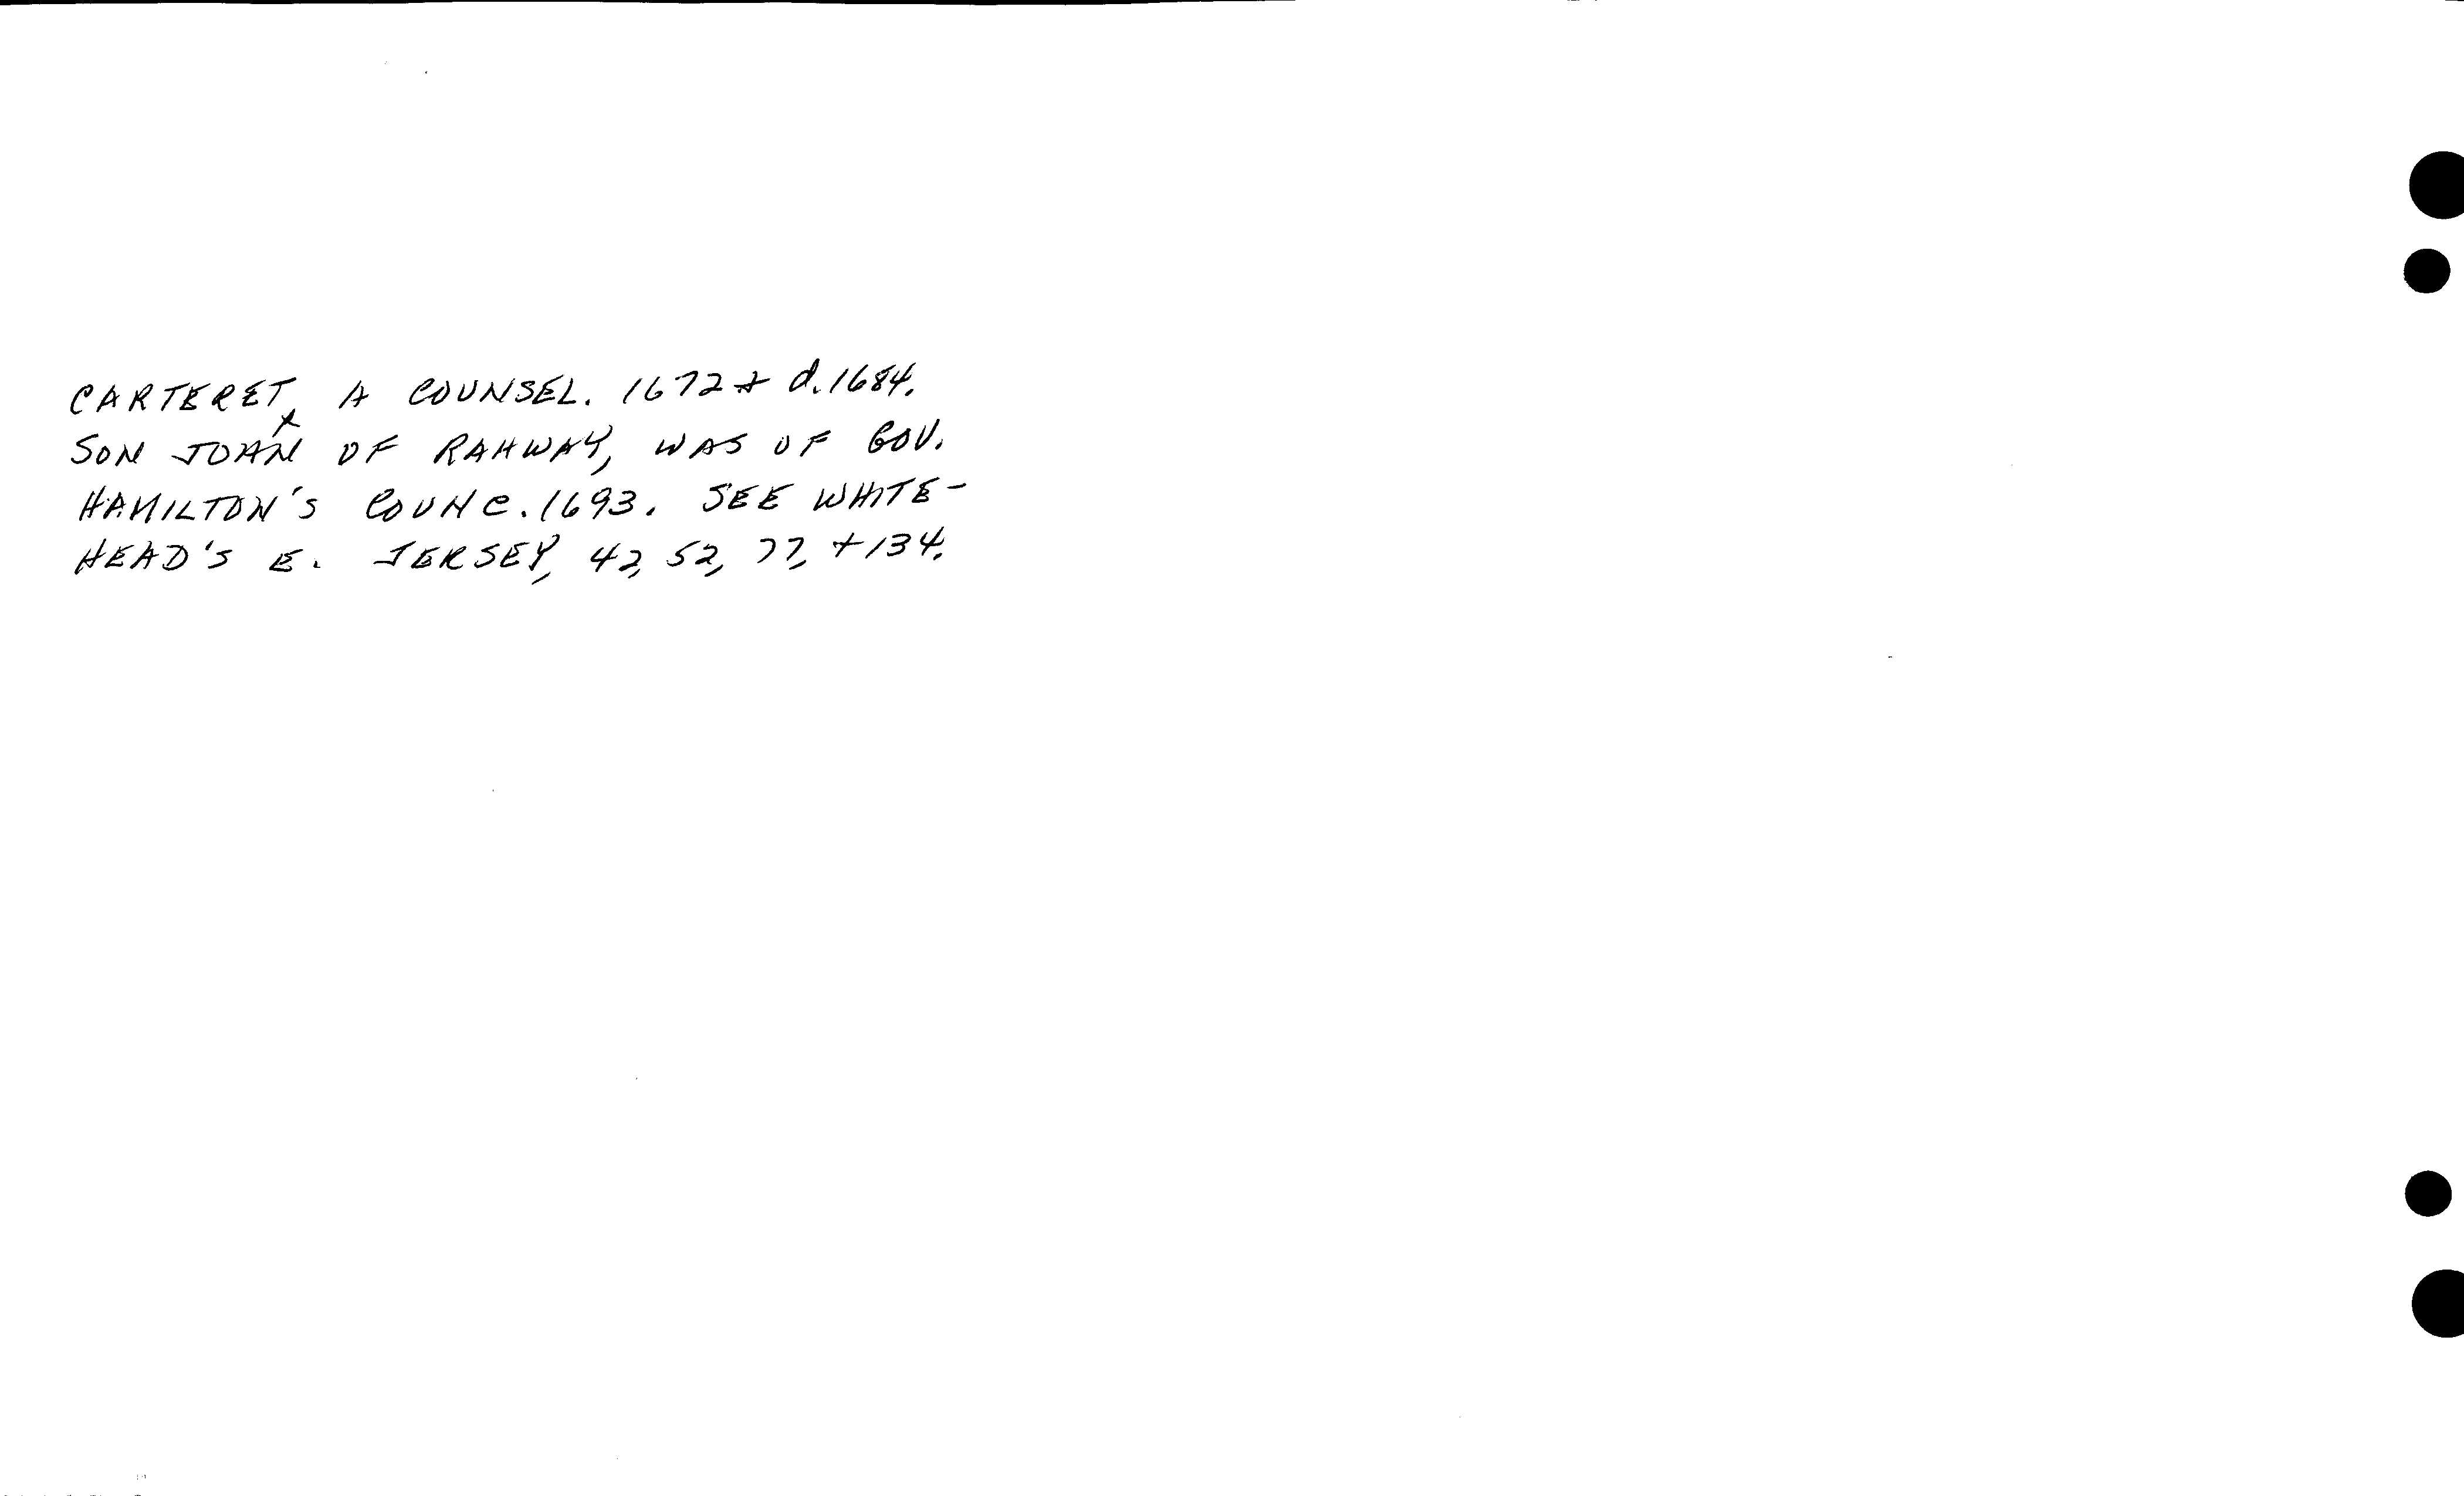 CARTERET, A COUNSEL. 1672 + d. 1684.
SON JOHN OF RAHWAY, WAS OF GOV.
HAMILTON'S COUNC. 1693. SEE WHITE-
HEAD'S E. JERSEY, 42, 52, 77, + 134.